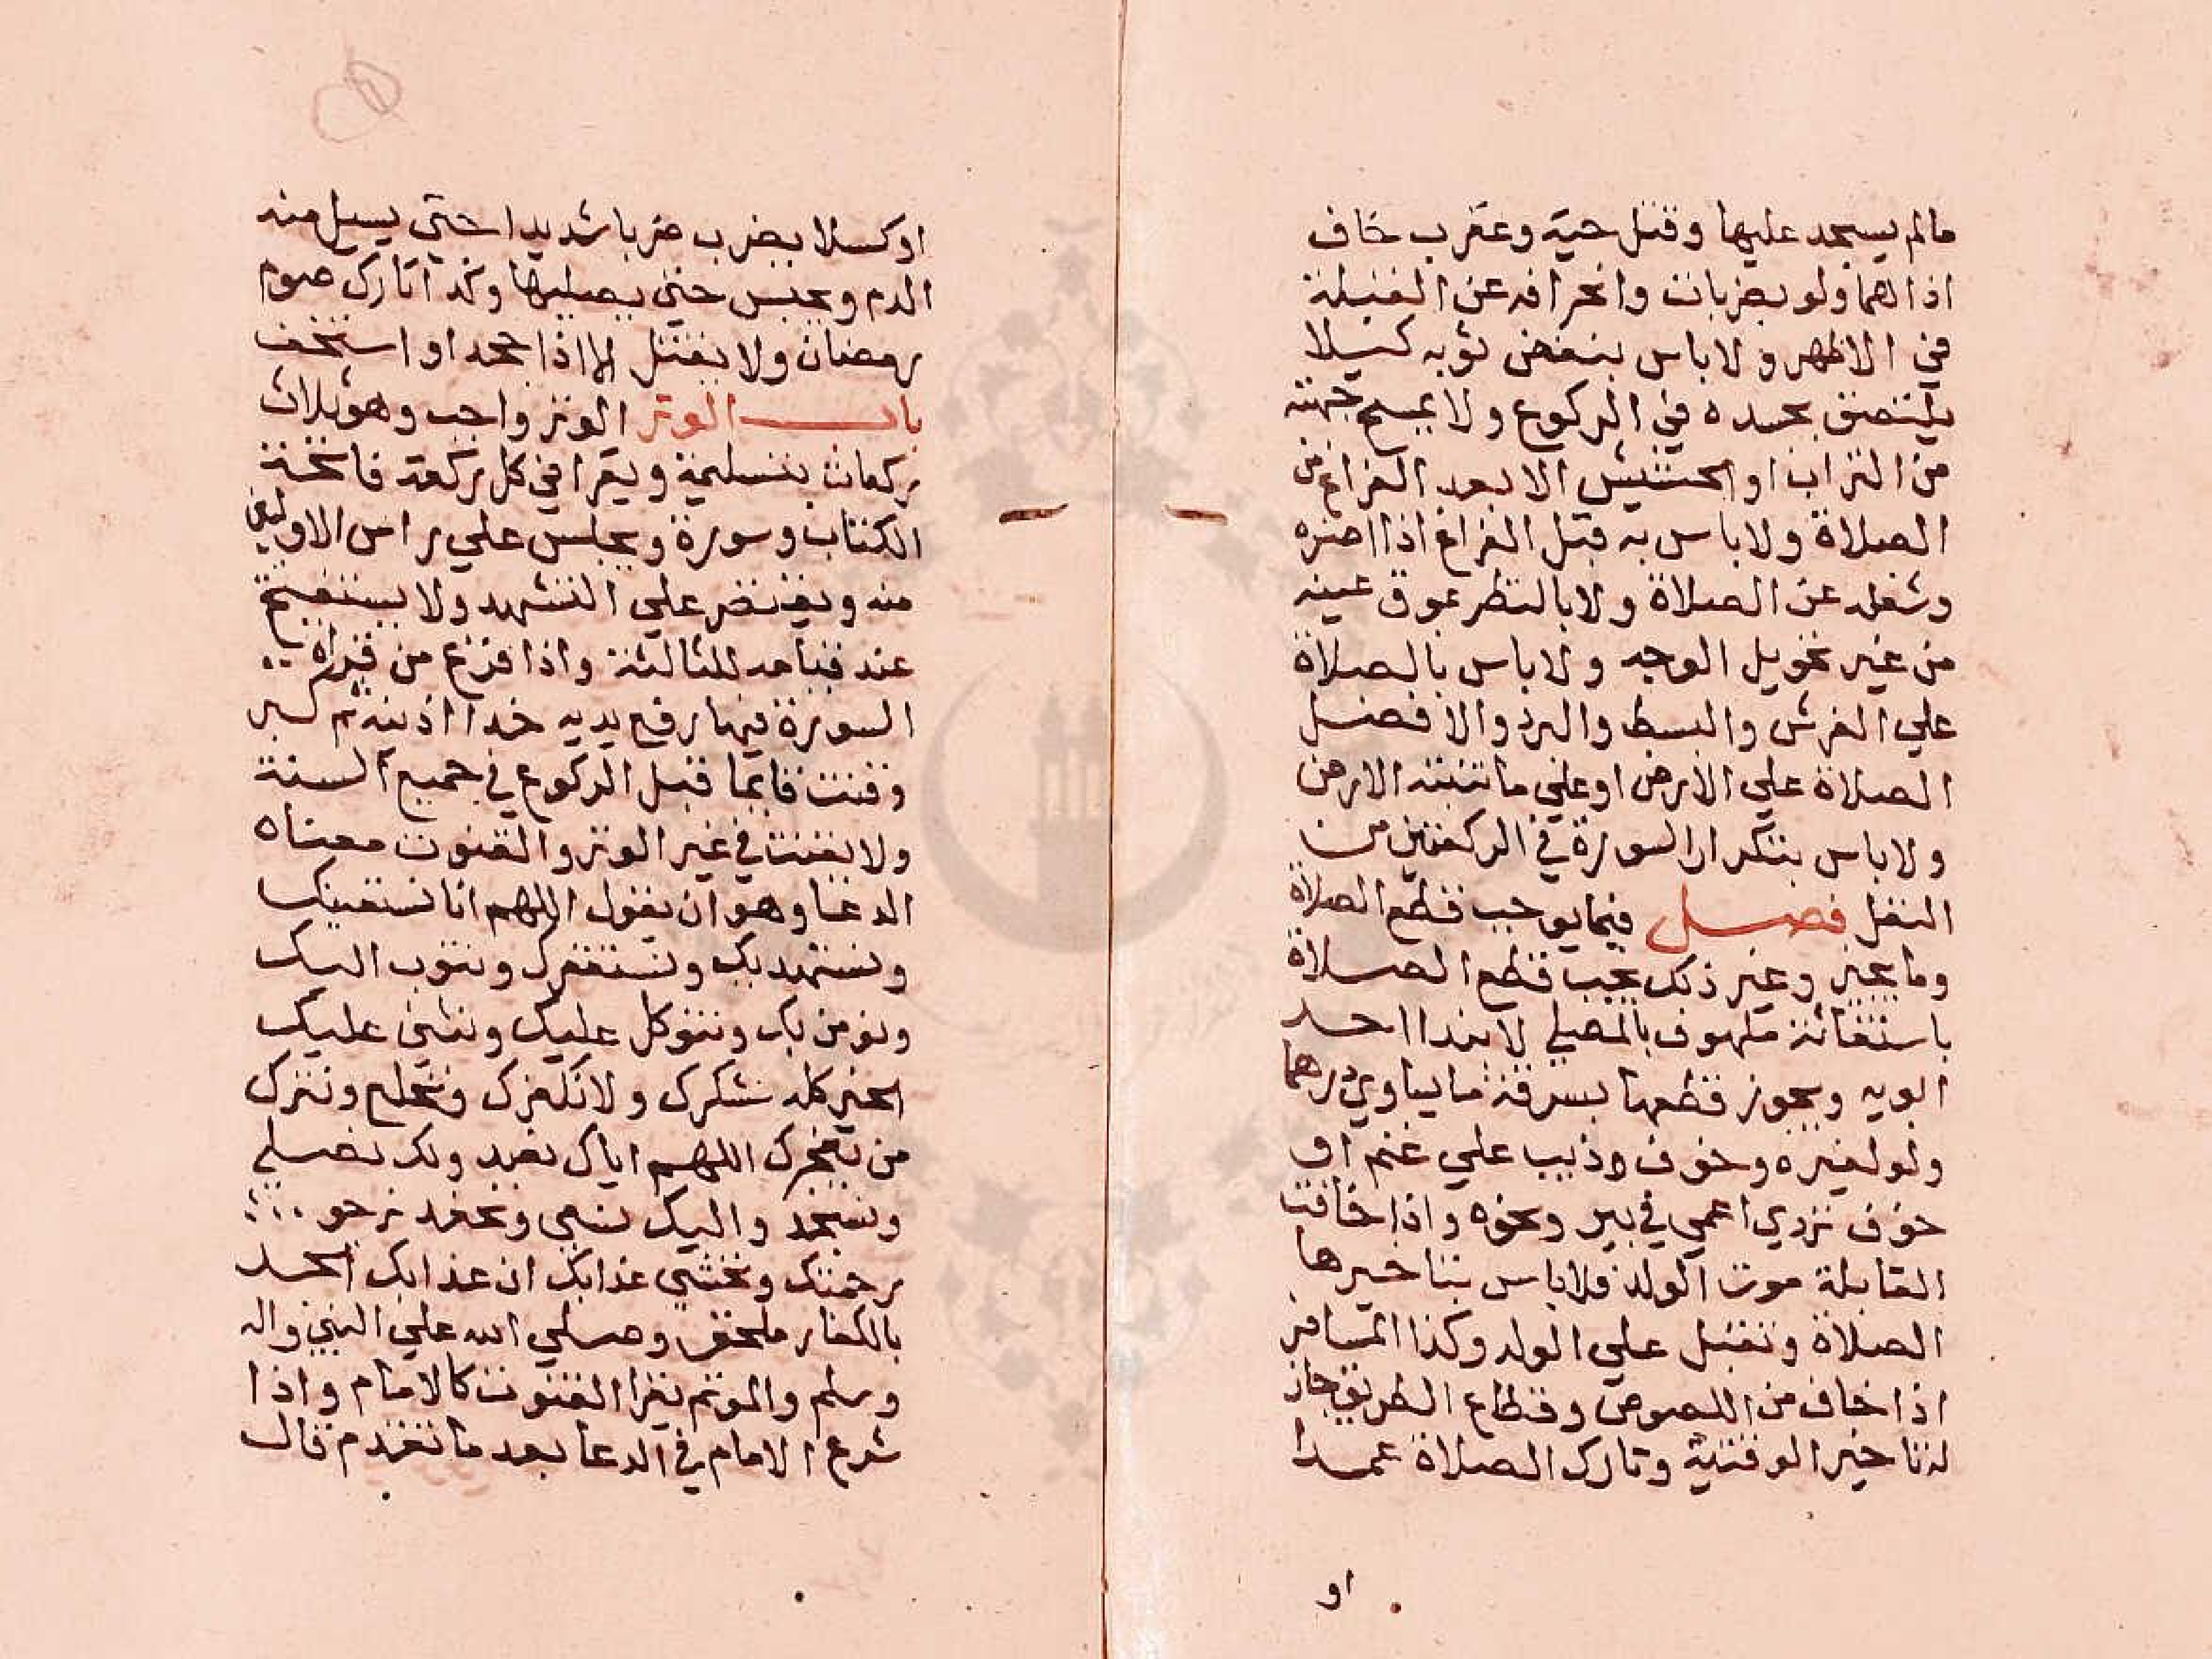 مالم يسجد عليها وقتل حية وعقرب خاف
اذاهما ولو بضربات وانحرافه عن القبلة
في الاظهر ولاباس بنفض ثوبه كيلا
يلتصق بجسده في الركوع ولا بمسح جبهته
من التراب او الحشيش الا بعد الفراغ من
الصلاة ولاباس به قبل الفراغ اذا اضره
وشغله عن الصلاة ولا بالنظر بموق عينيه
من غير تحويل الوجه ولاباس بالصلاة
علي الفرش والبسط واللبد والافضل
الصلاة علي الارض او علي ما تنبته الارض
ولاباس بتكرار السورة في الركعتين من
النفل فصل فيما يوجب قطع الصلاة
وما يجيز وغير ذلك يجب قطع الصلاة
باستغاثة ملهوف بالمصلي لا بندا احد
ابويه ويجوز قطعها بسرقة ما يساوي درهما
ولو لغيره وخوف ذيب علي غنم او
خوف تردي اعمي في بير ونحوه واذا خافت
القابلة موت الولد فلاباس بتاخيرها
الصلاة وتقبل علي الولد وكذا المسافر
اذا خاف من اللصوص وقطاع الطريق جاز
له تاخير الوقتية وتارك الصلاة عمدا
او
او كسلا يضرب ضربا شديدا حتي يسيل منه
الدم ويحبس حتي يصليها وكذا تارك صوم
رمضان ولا يقتل الا اذا جحد او استخف
باب الوتر الوتر واجب وهو ثلاث
ركعات بتسليمة ويقرا في كل ركعة فاتحة
الكتاب وسورة ويجلس علي راس الاوليين
منه ويقتصر علي التشهد ولا يستفتح
عند قيامه للثالثة واذا فرغ من قراة
السورة فيها رفع يديه حذا اذنيه ثم كبر
وقنت قايما قبل الركوع في جميع السنة
ولا يقنت في غير الوتر والقنوت معناه
الدعا وهو ان يقول اللهم انا نستعينك
ونستهديك ونستغفرك ونتوب اليك
ونومن بك ونتوكل عليك ونثني عليك
الخير كله نشكرك ولا نكفرك ونخلع ونترك
من يفجرك اللهم اياك نعبد ولك نصلي
ونسجد واليك نسعي ونحفد نرجو
رحمتك ونخشي عذابك ان عذابك الجد
بالكفار ملحق وصلي الله علي النبي واله
وسلم والموتم يقرا القنوت كالامام واذا
شرع الامام في الدعا بعد ما تقدم قال